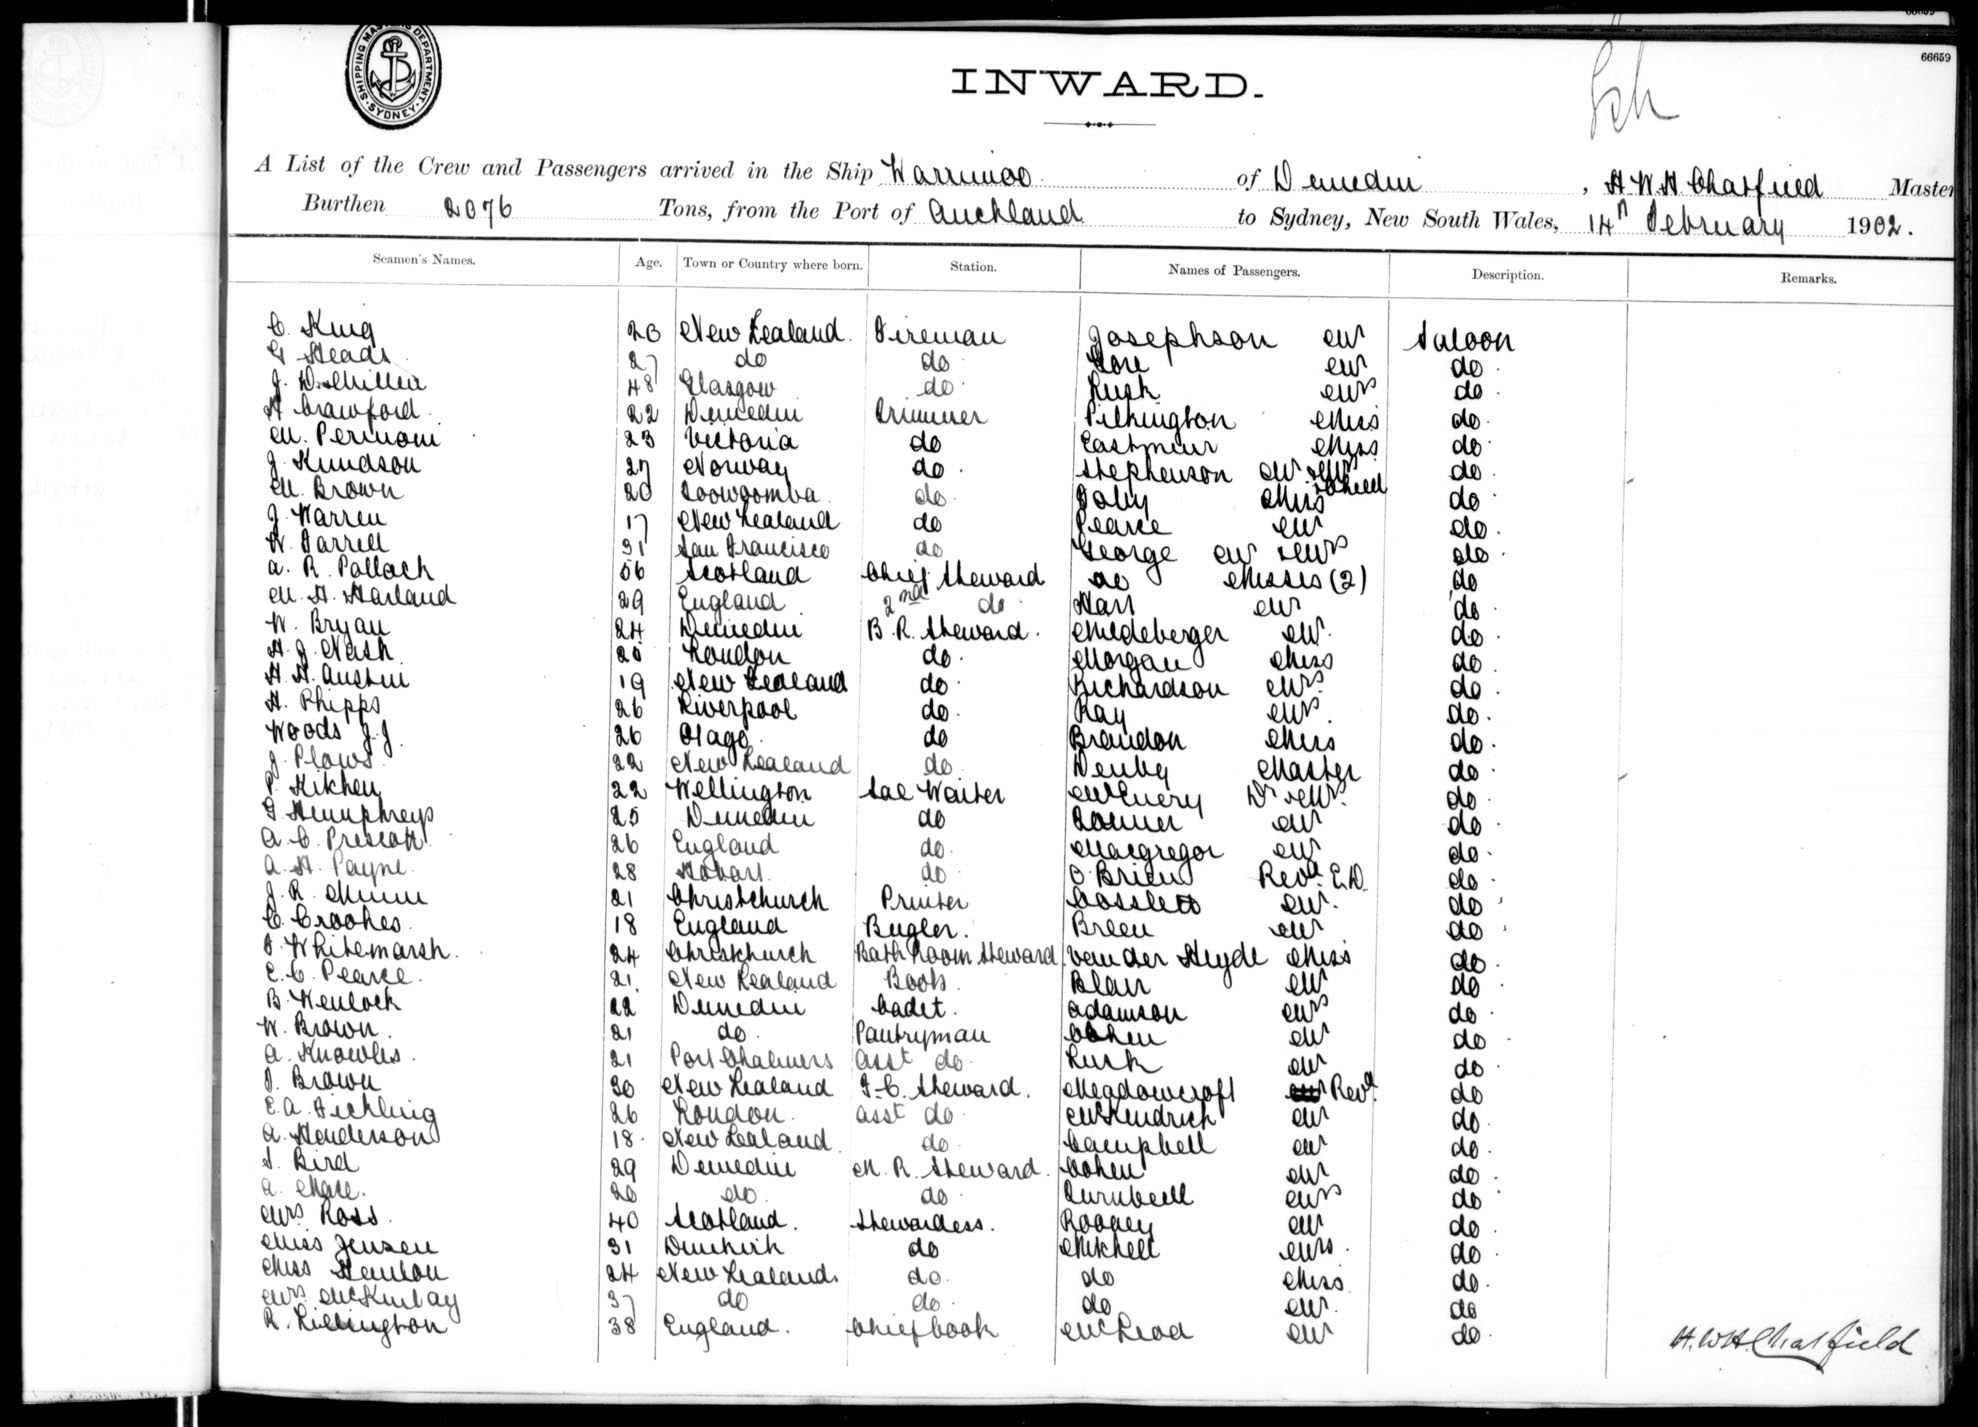 66659
SHIPPING MASTERS DEPARTMENT SYDNEY
INWARD.
A List of the Crew and Passengers arrived in the Ship Warrimoo of Dunedin, H W H Chatfield Master
Burthen 2076 Tons, from the Port of Auckland to Sydney, New South Wales, 14th February 1902.
Seamen's Names. Age. Town or Country where born. Station. Names of Passengers. Description. Remarks.
C. King 23 New Zealand Fireman Josephson Mr Saloon
G Heads 27 do do Gore Mr do
J. D. Miller 48 Glasgow do Rush Mrs do
A Crawford 22 Dunedin Trimmer Pilkington Miss do
M. Perinoni 23 Victoria do Eastmuir Miss do
J. Knudson 27 Norway do Stephenson Mr & Mrs & Child do
M. Brown 20 Toowoomba do Miss do
J. Warren 17 New Zealand do Pearce Mr do
W. Farrell 31 San Francisco do George Mr & Mrs do
A. R. Pollock 56 Scotland Chief Steward do Misses (2) do
M. H. Harland 29 England 2nd do Hart Mr do
W. Bryan 24 Dunedin B. R. Steward. Mildeberger Mr. do
H. J. Nash 20 London do Morgan Miss do
H. H. Austin 19 New Zealand do Richardson Mrs do
H. Phipps 26 Liverpool do Ray Mrs. do
Woods J. J. 26 Otago do Brandon Miss do
J. Plows 22 New Zealand do Denby Master do
P. Kitchen 22 Wellington Sal Waiter McEnery Dr & Mrs. do
G Humphreys 25 Dunedin do Mr do
A. C. Prescott 26 England do Macgregor Mr do
A. H. Payne. 28 Hobart do O'Brien Revd. E.D. do
J. R. Munn 21 Christchurch Printer Cosslett Mr. do
C. Crookes 18 England Bugler. Breen Mr do
F Whitemarsh 24 Christchurch Bath Room Steward Van der Heyde Miss do
E. C. Pearce. 21 New Zealand Boots. Blair Mr do
B. Wenlock 22 Dunedin Cadet. Adamson Mrs do
W. Brown. 21 do. Pantryman Cohen Mr do
A. Knowles. 21 Port Chalmers Asst do Mr do
J. Brown 30 New Zealand F. C. Steward. Meadowcroft Revd. do
E. A. Aichling 26 London. Asst do McKendrick Mr do
A. Henderson 18 New Zealand do Campbell Mr do
S. Bird 29 Dunedin M. R. Steward. Cohen Mr do
A. Male. 20 do. do Turnbull Mrs do
Mrs Ross 40 Scotland. Stewardess. Rooney Mr do
Miss Jensen 31 Dunkirk do Mitchell Mrs. do
Miss Hanlon 24 New Zealand. do. do Miss do
Mrs McKinlay 37 do do do Mr. do
R. Lillington 38 England. Chief Cook McLeod Mr do
H. W. H. Chatfield